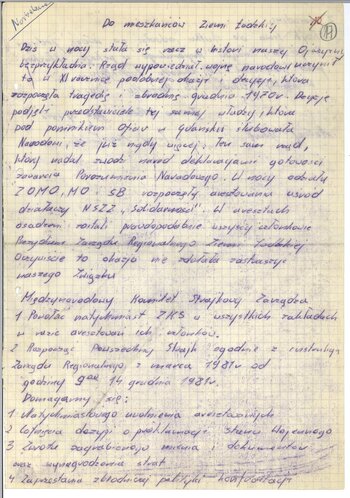 Do mieszkańców Ziemi Łódzkiej
Dziś w nocy stała się rzecz w historii naszej Ojczyzny
bezprzykładna. Rząd wypowiedział wojnę narodowi
to w XI rocznicę podobnej okazji i decyzji, która
rozpoczęła tragedię i zbrodnię grudnia 1970r. Decyzję
podjęli przedstawiciele tej samej władzy, która
pod pomnikiem Ofiar w Gdańsku ślubowała
Narodowi, że już nigdy więcej. Ten sam rząd,
który nadal zwodzi naród deklaracjami gotowości
zawarcia Porozumienia Narodowego. W nocy oddziały
ZOMO, MO, SB rozpoczęły aresztowania wśród
działaczy NSZZ „Solidarność". W aresztach
osadzeni zostali prawdopodobnie wszyscy członkowie
Prezydium Zarządu Regionalnego Ziemi Łódzkiej
Oczywiście ta okazja nie zdołała zaskoczyć
naszego Związku
Międzyzakładowy Komitet Strajkowy Zarządza
1 Powołać natychmiast ZKS w wszystkich zakładach
w razie aresztowań ich członków.
2 Rozpocząć Powszechny Strajk zgodnie z instrukcją
Zarządu Regionalnego z marca 1981r od
godziny 9⁰⁰ 14 grudnia 1981r.
Domagamy się:
1 Natychmiastowego uwolnienia aresztowanych
2 Cofnięcia decyzji o proklamacji Stanu Wojennego
3 Zwrotu zagrabionego mienia i dokumentów
oraz wynagrodzenia strat
4 Zaprzestania zbrodniczej polityki konfrontacji